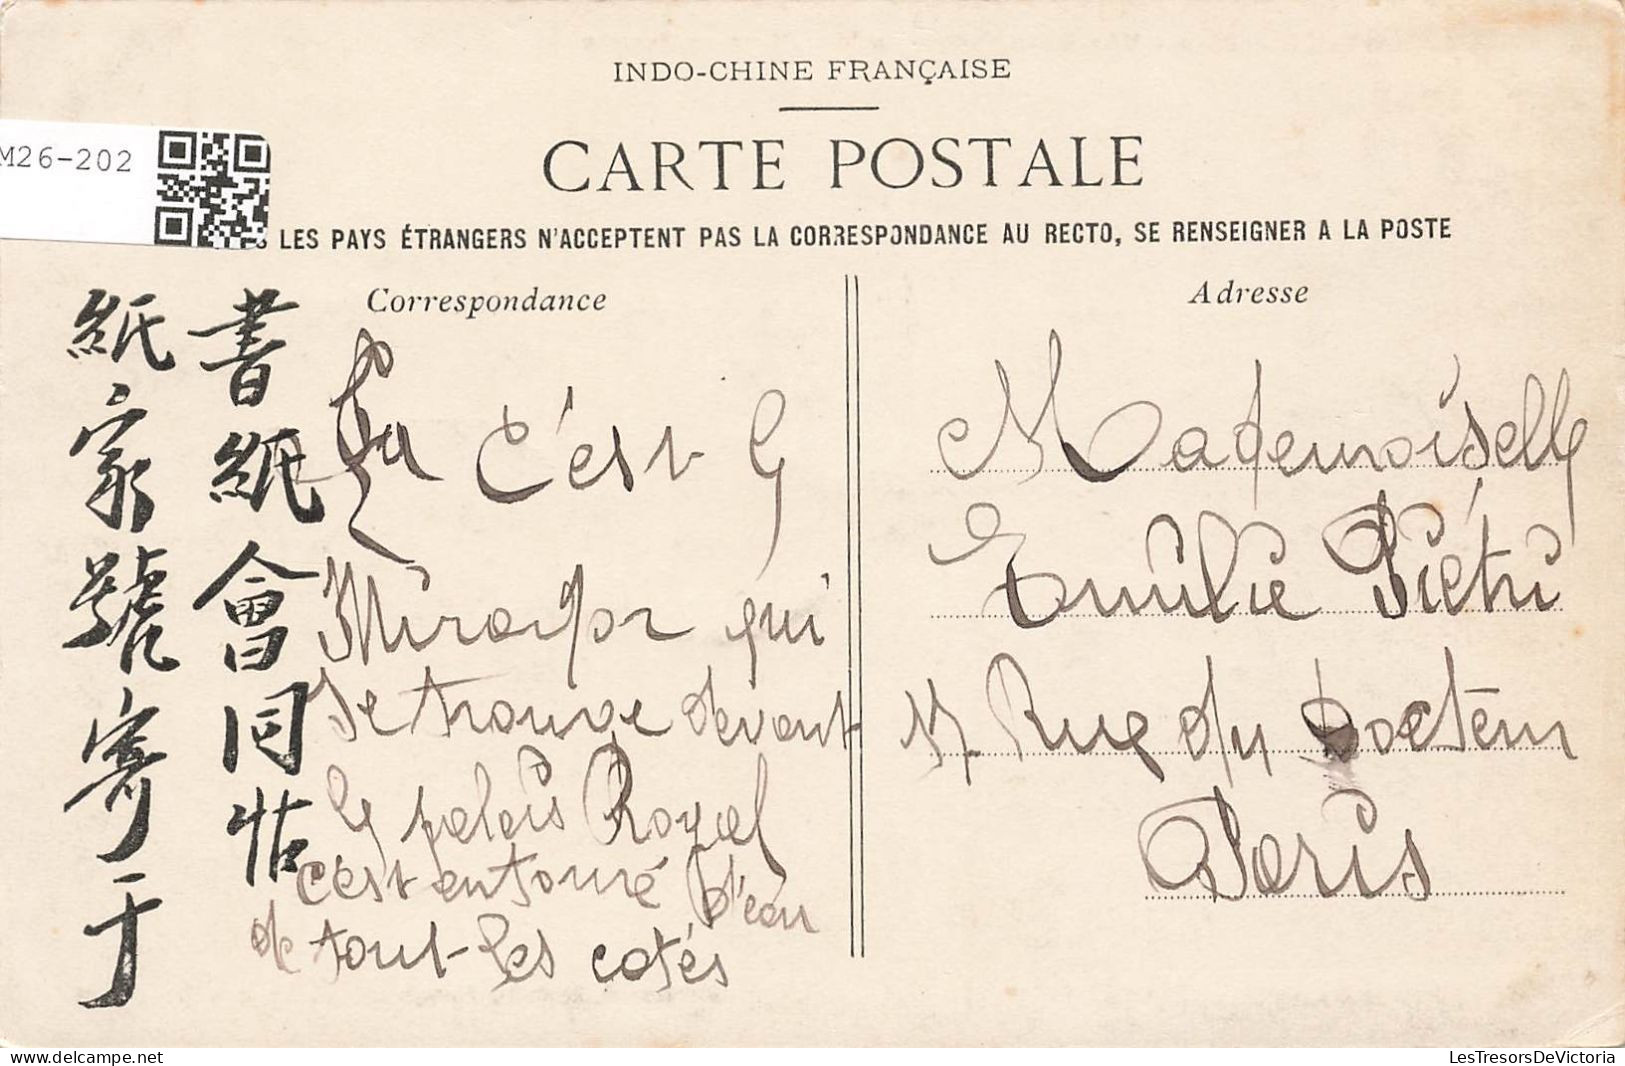 INDO-CHINE FRANÇAISE
CARTE POSTALE
M26-202
LES PAYS ÉTRANGERS N'ACCEPTENT PAS LA CORRESPONDANCE AU RECTO, SE RENSEIGNER A LA POSTE
Correspondance
Adresse
書紙會同
紙家號寄于
Ça c'est le
qui
se trouve devant
le palais Royal
c'est entouré d'eau
de tout les cotés
Mademoiselle
Emilie Piétri
Rue du Docteur
Paris
Delcampe.net
LesTresorsDeVictoria